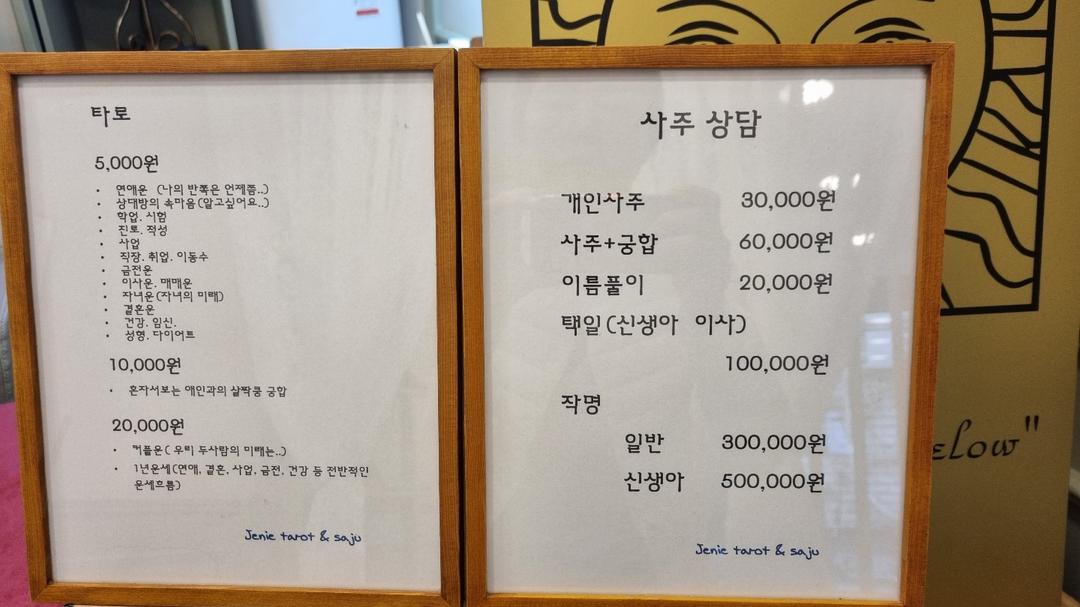 타로
5,000원
• 연애운 (나의 반쪽은 언제쯤..)
• 상대방의 속마음(알고싶어요..)
• 학업. 시험
• 진로. 적성
• 사업
• 직장. 취업. 이동수
• 금전운
• 이사운. 매매운
• 자녀운(자녀의 미래)
• 결혼운
• 건강. 임신.
• 성형. 다이어트
10,000원
• 혼자서보는 애인과의 살짝쿵 궁합
20,000원
• 커플운( 우리 두사람의 미래는..)
• 1년운세(연애, 결혼, 사업, 금전, 건강 등 전반적인
운세흐름)
Jenie tarot & saju
사주 상담
개인사주 30,000원
사주+궁합 60,000원
이름풀이 20,000원
택일(신생아 이사)
100,000원
작명
일반 300,000원
신생아 500,000원
Jenie tarot & saju
elow"